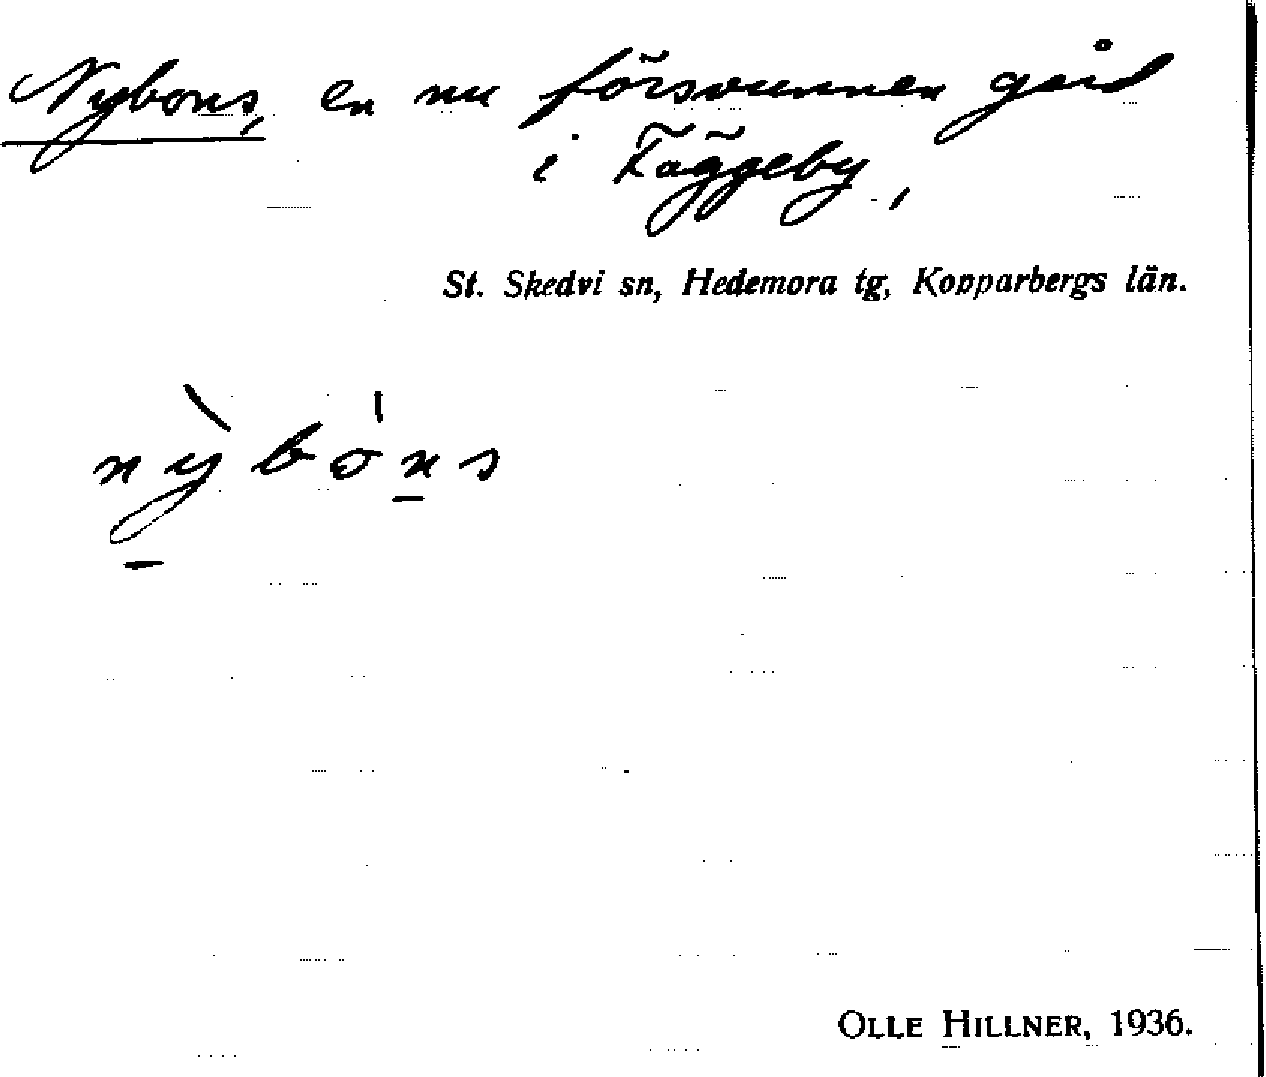 Nybons, en nu försvunnen gård
i Fäggeby,
St. Skedvi sn, Hedemora tg, Kopparbergs län.
nỳbóns
OLLE HILLNER, 1936.